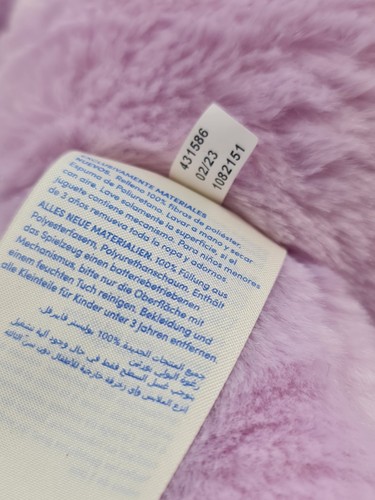 431586
02/23
1082151
EXCLUSIVAMENTE MATERIALES
NUEVOS. Relleno 100% fibras de poliéster,
Espuma de Poliuretano. Lavar a mano y secar
can aire. Lave solamente la superficie, si el
juguete contiene mecanismo. Para niños menores
de 3 años remueva toda la ropa y adornos.
ALLES NEUE MATERIALIEN. 100% Füllung aus
Polyesterfasern, Polyurethanschaum. Enthält
das Spielzeug einen batteriebetriebenen
Mechanismus, bitte nur die Oberfläche mit
einem feuchten Tuch reinigen. Bekleidung und
alle Kleinteile für Kinder unter 3 Jahren entfernen.
جميع المنتجات الجديدة 100% بوليستر فايبرفل
رغوة البولي يوريثين
يتوجب غسل السطح فقط في حال وجود آلية تشغيل
انزع الملابس وأي زخرفة خارجية للأطفال دون سن الثالثة